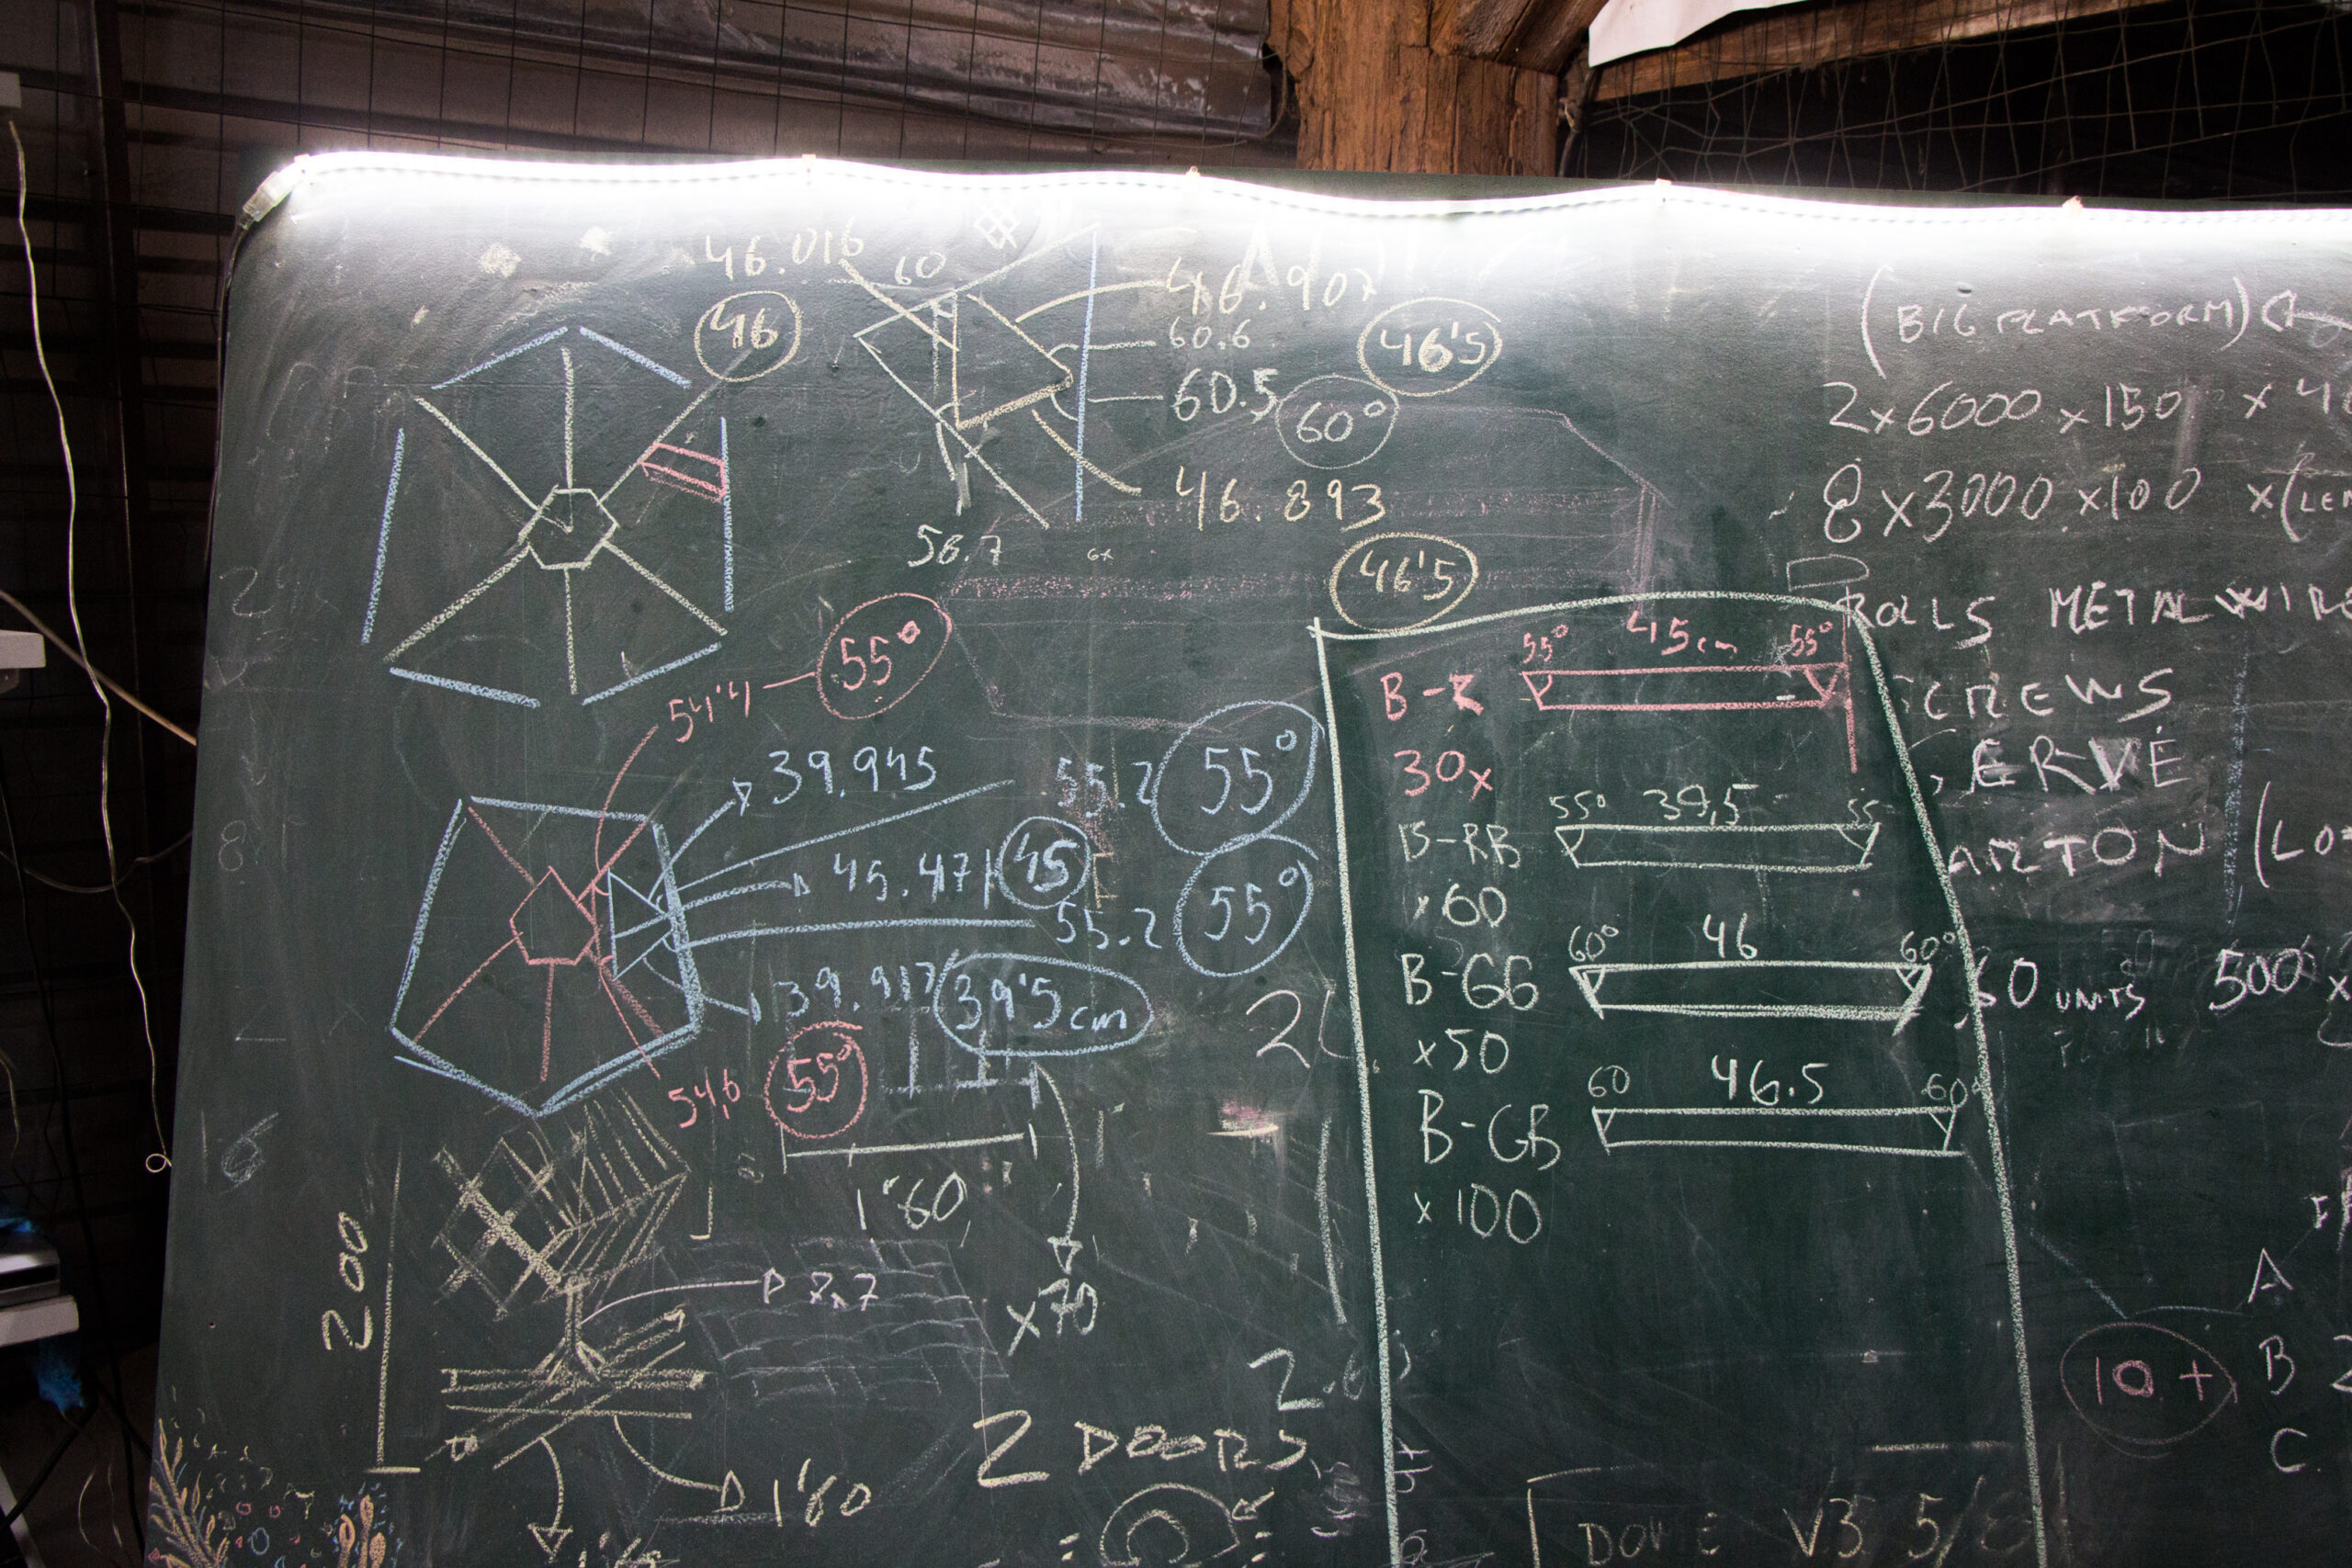 46.016
60
46.907
46
60.6
46'5
60.5
60°
46.893
58.7
6x
46'5
54'4
55°
39.945
55.2
55°
45.471
45
55.2
55°
39.917
39'5cm
54,6
55°
1'60
200
x70
2 DOORS
1'60
55° 45cm 55°
B-R
30x
55° 39,5 55
B-RB
x60
60° 46 60°
B-GG
x50
60 46.5 60°
B-GB
x100
DOME V3 5/8
(BIG PLATFORM)
2x6000x150 x 4
8x3000x100 x(LE
ROLLS METAL WIR
SCREWS
ERVE
ARTON (LO
60 UNITS 500 x
10 +
A
B
C